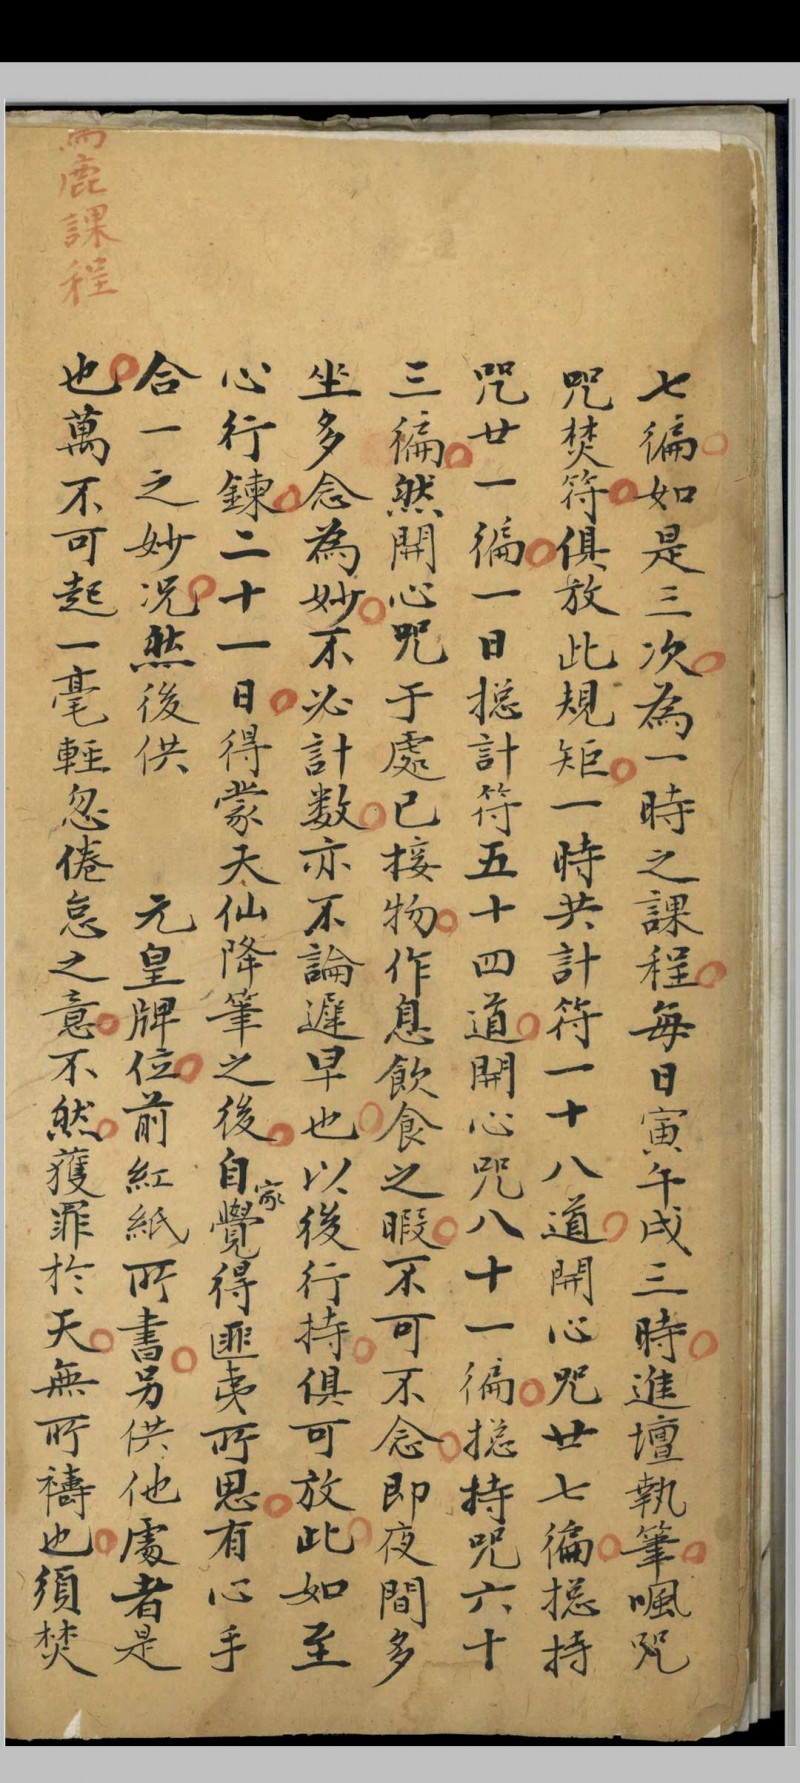 七徧如是三次為一時之課程每日寅午戌三時進壇執筆諷咒
咒焚符俱放此規矩一時共計符一十八道開心咒廿七徧揔持
咒廿一徧一日揔計符五十四道開心咒八十一徧揔持咒六十
三徧然開心咒于處己接物作息飲食之暇不可不念即夜間多
坐多念為妙不必計数亦不論遲早也以後行持俱可放此如至
心行鍊二十一日得蒙天仙降筆之後自家覺得匪夷所思有心手
合一之妙况然後供 元皇牌位前紅紙所書另供他處者是
也萬不可起一毫輕忽倦怠之意不然獲罪於天無所禱也須焚
鹿課程